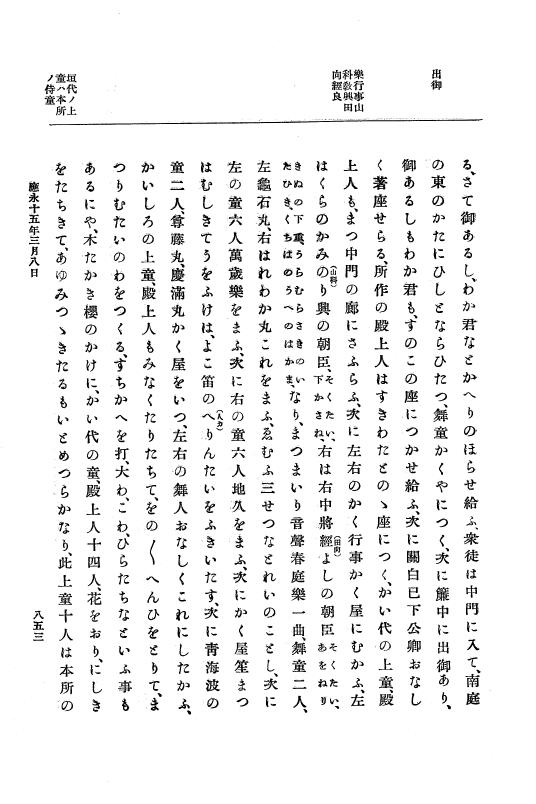 出御
樂行事山
科敎興田
向經良
垣代ノ上
童ハ本所
ノ侍童
る、さて御あるし、わか君なとかへりのほらせ給ふ、衆徒は中門に入て、南庭
の東のかたにひしとならひたつ、舞童かくやにつく、次に簾中に出御あり、
御あるしもわか君も、すのこの座につかせ給ふ、次に關白已下公卿おなし
く著座せらる、所作の殿上人はすきわたとのゝ座につく、かい代の上童、殿
上人も、まつ中門の廊にさふらふ、次に左右のかく行事かく屋にむかふ、左
はくらのかみのり(山科)興の朝臣、そくたい、下かさね、右は右中將經(田向)よしの朝臣そくたい、あをねり
きぬの下重、うらむらさきのいたひき、くちはのうへのはかま、なり、まつまいり音聲春庭樂一曲、舞童二人、
左龜石丸、右はれわか丸これをまふ、ゑむふ三せつなとれいのことし、次に
左の童六人萬歲樂をまふ、次に右の童六人地久をまふ、次にかく屋笙まつ
はむしきてうをふけは、よこ笛のへ(人カ)りんたいをふきいたす、次に靑海波の
童二人、尊藤丸、慶滿丸かく屋をいつ、左右の舞人おなしくこれにしたかふ、
かいしろの上童、殿上人もみなくたりたちて、をの〱へんひをとりて、ま
つりむたいのわをつくる、すちかへを打、大わ、こわ、ひらたちなといふ事も
あるにや、木たかき櫻のかけに、かい代の童、殿上人十四人、花をおり、にしき
をたちきて、あゆみつゝきたるもいとめつらかなり、此上童十人は本所の
應永十五年三月八日
八五三